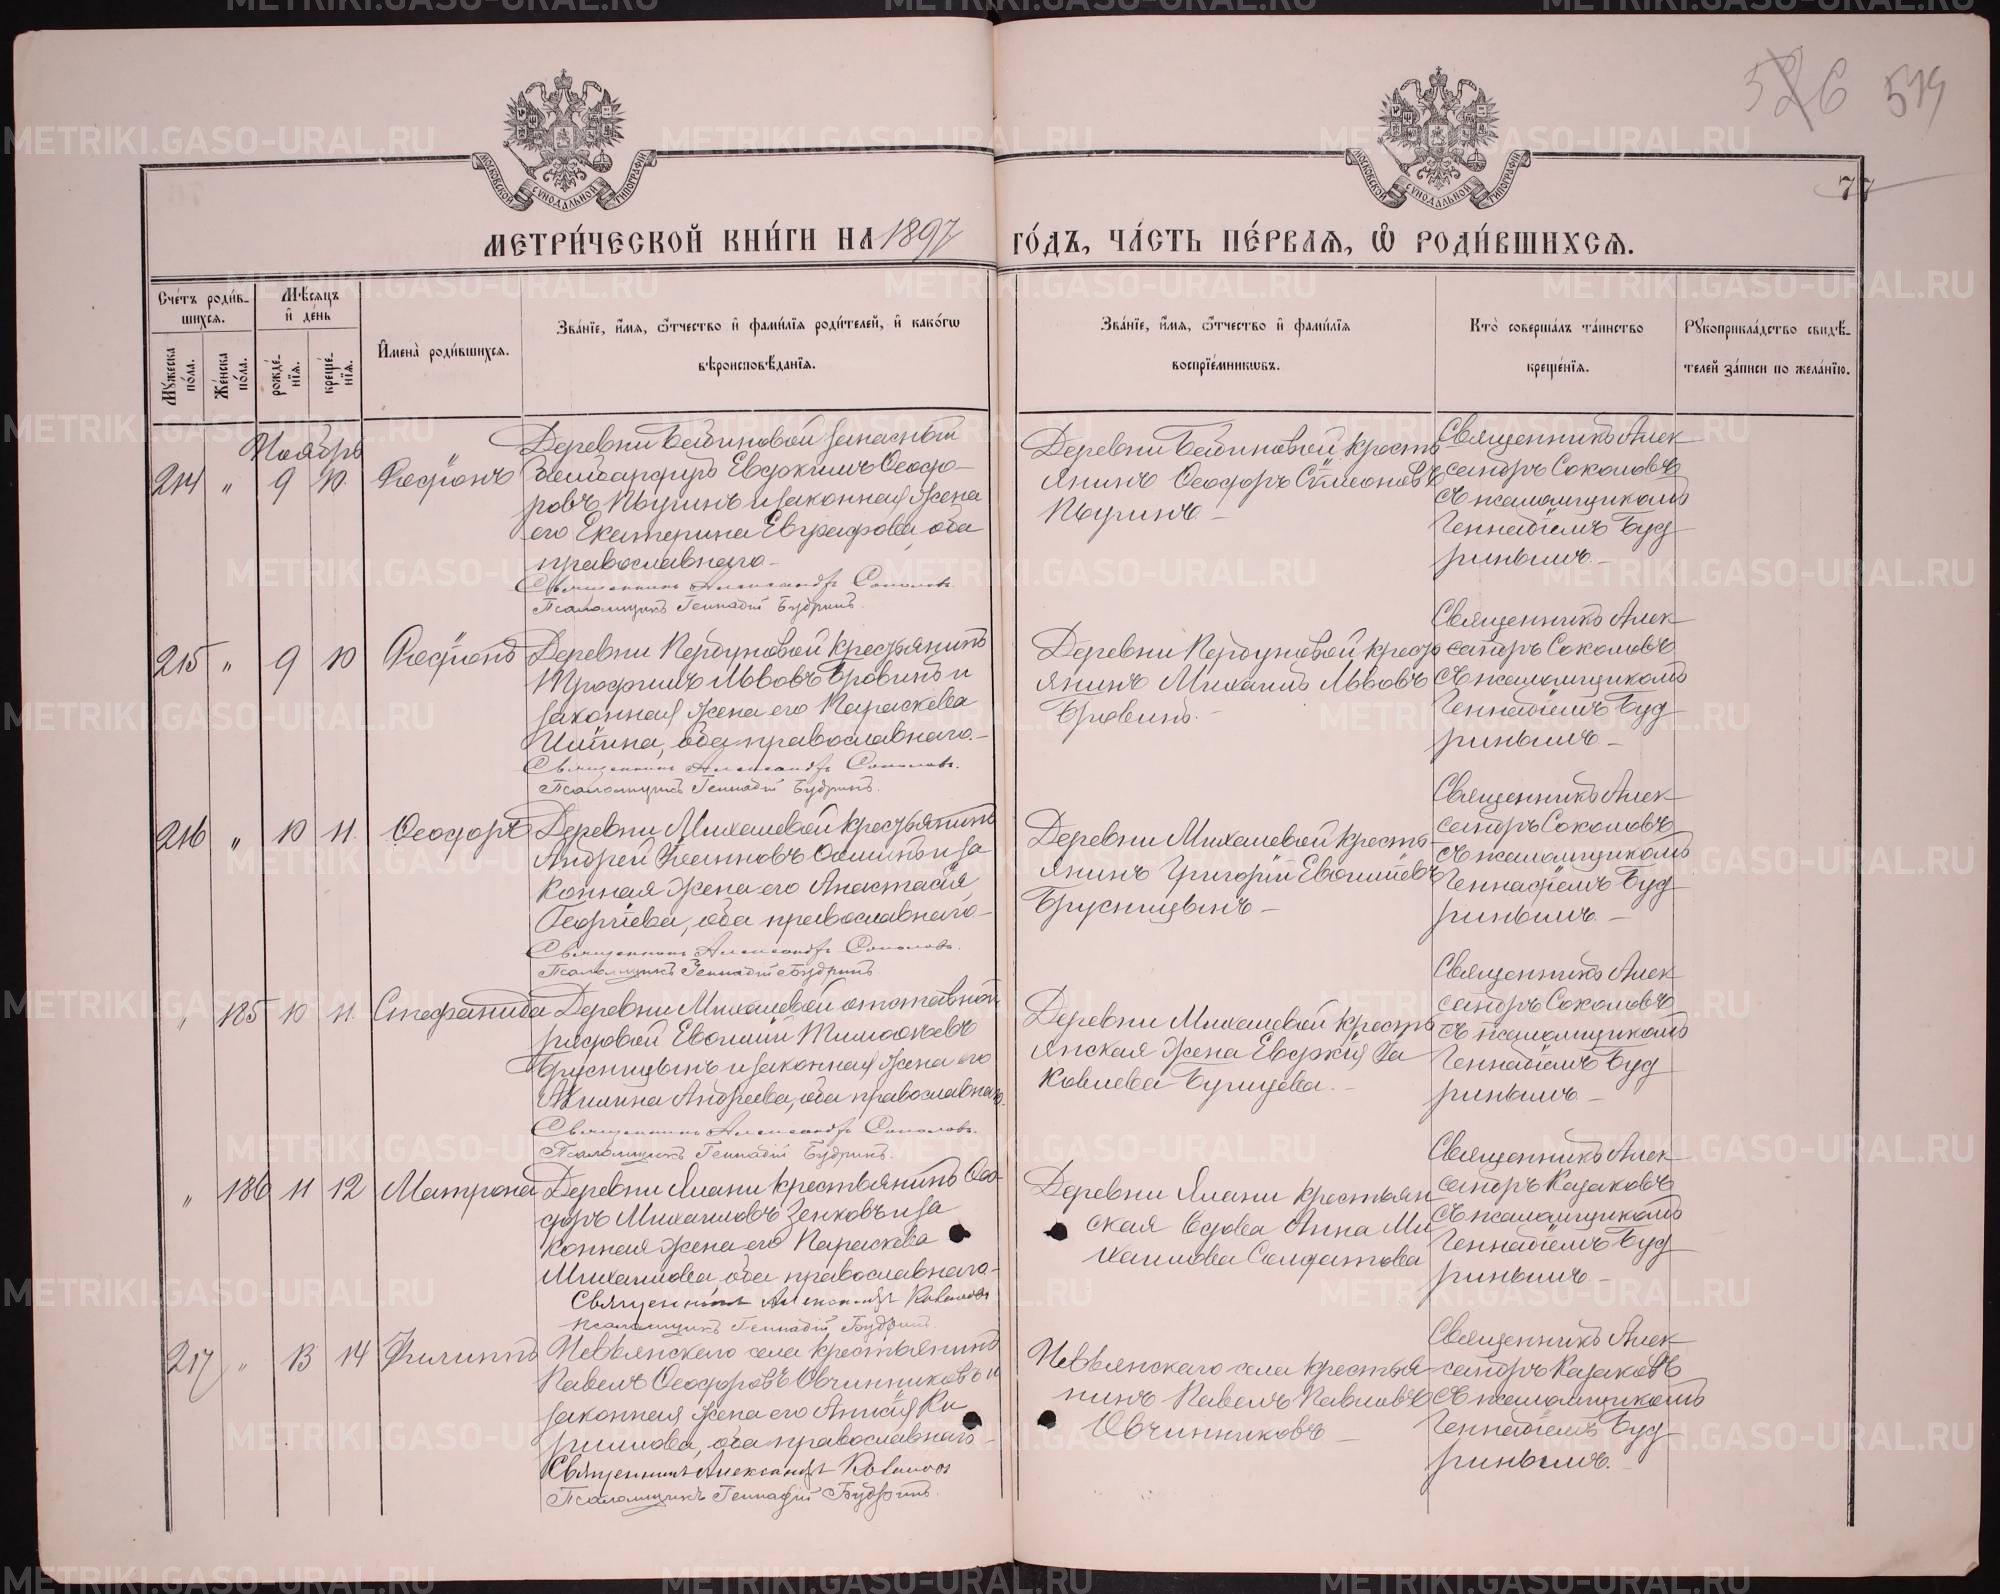 526 519
77
МОСКОВСКОЙ СУНОДАЛЬНОЙ ТИПОГРАФІИ
МОСКОВСКОЙ СУНОДАЛЬНОЙ ТИПОГРАФІИ
МЕТРИ́ЧЕСКОЙ КНИ́ГИ НА 1897 ГО́ДЪ, ЧА́СТЬ ПЕ́РВАЯ, Ѡ РОДИ́ВШИХСЯ.
Сче́тъ роди́вшихся.
Мꙋ́жеска по́ла.
Же́нска по́ла.
Мѣ́сяцъ и҆ де́нь
рожде́нїя.
креще́нїя.
И҆мена̀ роди́вшихся.
Зва́нїе, и҆́мя, ѻ҆́тчество и҆ фами́лїя роди́телей, и҆ како́гѡ
вѣроисповѣ́данїя.
Зва́нїе, и҆́мя, ѻ҆́тчество и҆ фами́лїя
воспрїе́мникѡвъ.
Кто̀ соверша́лъ та́инство
креще́нїя.
Рꙋкоприкла́дство свидѣ́-
телей за́писи по жела́нїю.
Ноябрь
214 " 9 10
Деревни запасный
Евфкимъ Ѳеодо-
ровъ и законная жена
его Екатерина Евграфова, оба
православнаго.
Священникъ Александръ Соколовъ.
Псаломщикъ Геннадій Будринъ.
Деревни кресть
янинъ Ѳеодоръ Сѵмеоновъ
Священникъ Алек
сандръ Соколовъ
съ псаломщикомъ
Геннадіемъ Буд
ринымъ.
215 " 9 10
Деревни крестьянинъ
Трофимъ Львовъ Бровинъ и
законная жена его Параскева
Ильина, оба православнаго.
Священникъ Александръ Соколовъ.
Псаломщикъ Геннадій Будринъ.
Деревни крест
янинъ Михаилъ Львовъ
Бровинъ.
Священникъ Алек
сандръ Соколовъ
съ псаломщикомъ
Геннадіемъ Буд
ринымъ
216 " 10 11. Ѳеодоръ
Деревни Михалевой крестьянинъ
Андрей и за
конная жена его Анастасія
Георгіева, оба православнаго
Священникъ Александръ Соколовъ.
Псаломщикъ Геннадій Будринъ.
Деревни Михалевой кресть
янинъ Григорій Евѳиміевъ
Брусницынъ
Священникъ Алек
сандръ Соколовъ
съ псаломщикомъ
Геннадіемъ Буд
ринымъ.
" 185 10 11. Стефанида
Деревни Михалевой отставной
рядовой Евѳимій Тимоѳеевъ
Брусницынъ и законная жена его
Акилина Андреева, оба православнаго.
Священникъ Александръ Соколовъ.
Псаломщикъ Геннадій Будринъ.
Деревни Михалевой кресть
янская жена Евдокія Іа
ковлева
Священникъ Алек
сандръ Соколовъ
съ псаломщикомъ
Геннадіемъ Буд
ринымъ
" 186 11 12 Матрона
Деревни Ялани крестьянинъ Ѳео
доръ Михаиловъ Зенковъ и за
конная жена его Параскева
Михаилова, оба православнаго.
Священникъ Александръ
Псаломщикъ Геннадій Будринъ.
Деревни Ялани крестьян
ская вдова Анна Ми
хаилова Солдатова
Священникъ Алек
сандръ Казаковъ
съ псаломщикомъ
Геннадіемъ Буд
ринымъ
217 " 13 14 Филиппъ
Невьянскаго села крестьянинъ
Павелъ Ѳеодоровъ Овчинниковъ и
законная жена его Анисія Ки
риллова, оба православнаго
Священникъ Александръ
Псаломщикъ Геннадій Будринъ.
Невьянскаго села крестья
нинъ Павелъ Павловъ
Овчинниковъ
Священникъ Алек
сандръ Казаковъ
съ псаломщикомъ
Геннадіемъ Буд
ринымъ.
METRIKI.GASO-URAL.RU